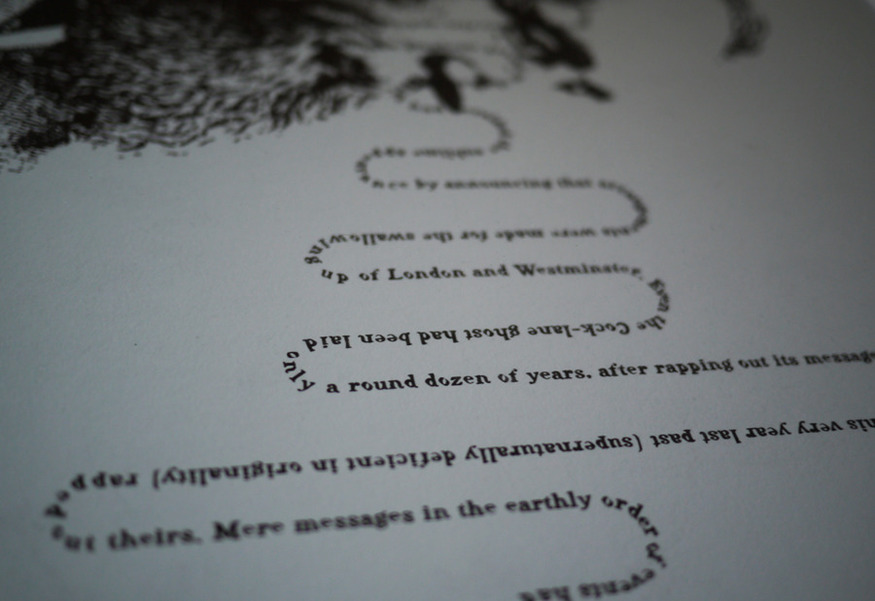 the sublime
by announcing that
were made for the swallowing
up of London and Westminster.
Even the Cock-lane ghost had been laid
only a round dozen of years, after rapping out its message
his very year last past (supernaturally deficient in originality) rapped
out theirs. Mere messages in the earthly order of
events had